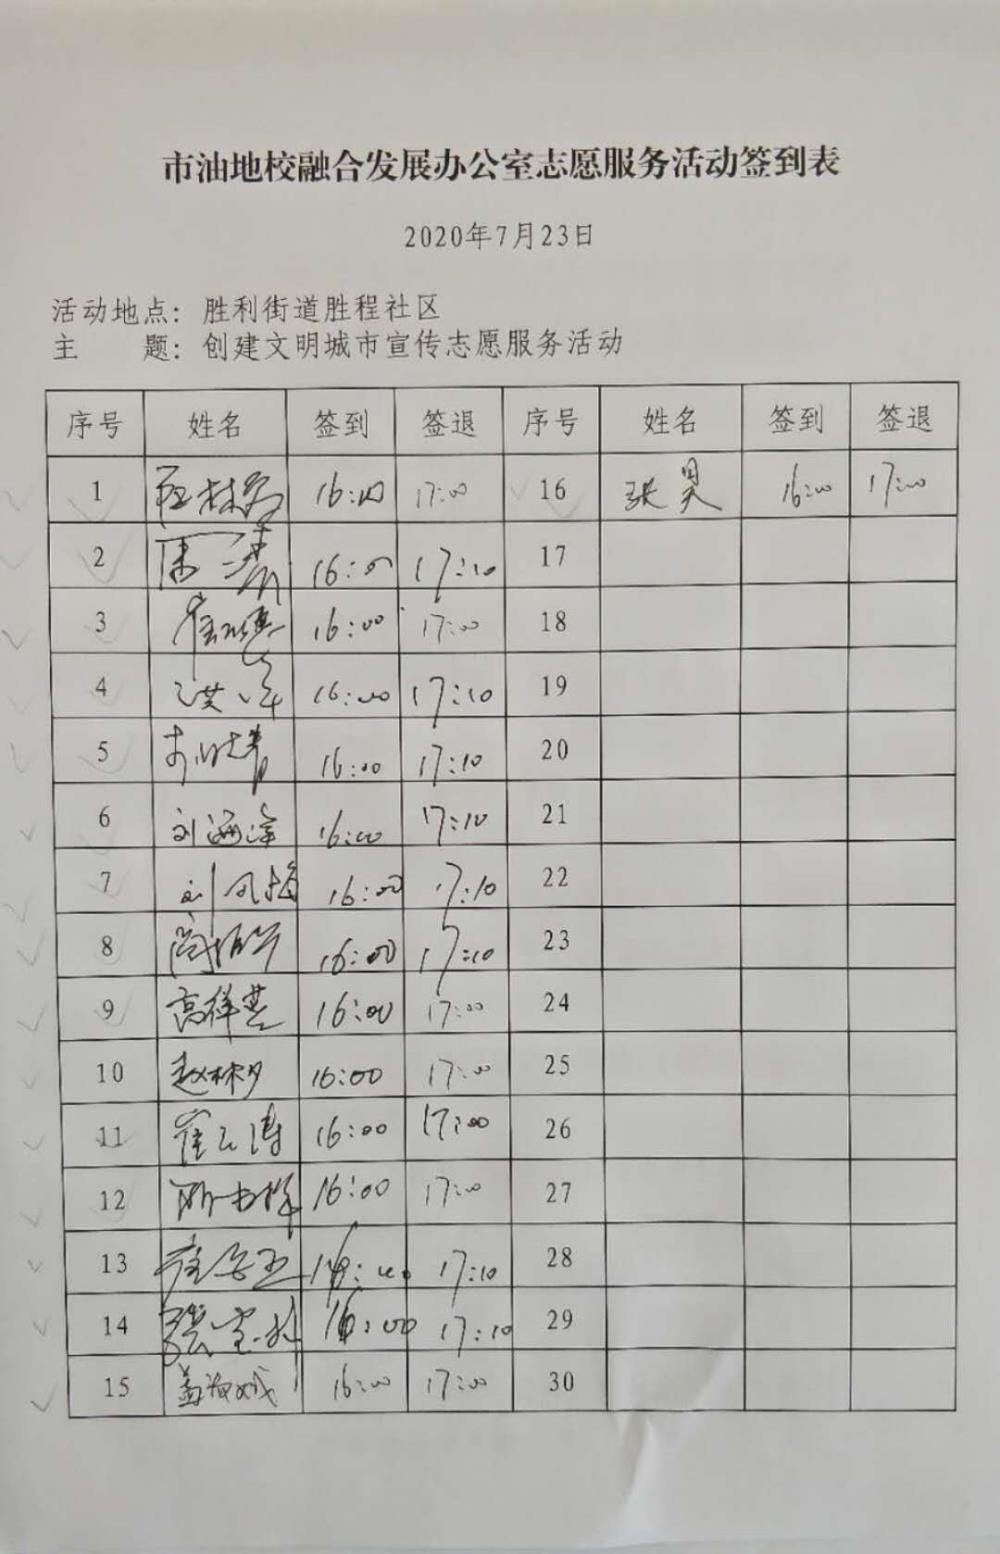 市油地校融合发展办公室志愿服务活动签到表
2020年7月23日
活动地点：胜利街道胜程社区
主 题：创建文明城市宣传志愿服务活动
序号 姓名 签到 签退 序号 姓名 签到 签退
1 16:00 17:00 16 张昊 16:00 17:00
2 16:00 17:10 17
3 16:00 17:00 18
4 16:00 17:10 19
5 16:00 17:10 20
6 刘海洋 16:00 17:10 21
7 刘凤梅 16:00 17:10 22
8 16:00 17:10 23
9 高祥慧 16:00 17:00 24
10 16:00 17:00 25
11 崔云涛 16:00 17:00 26
12 16:00 17:00 27
13 16:00 17:10 28
14 16:00 17:10 29
15 16:00 17:00 30